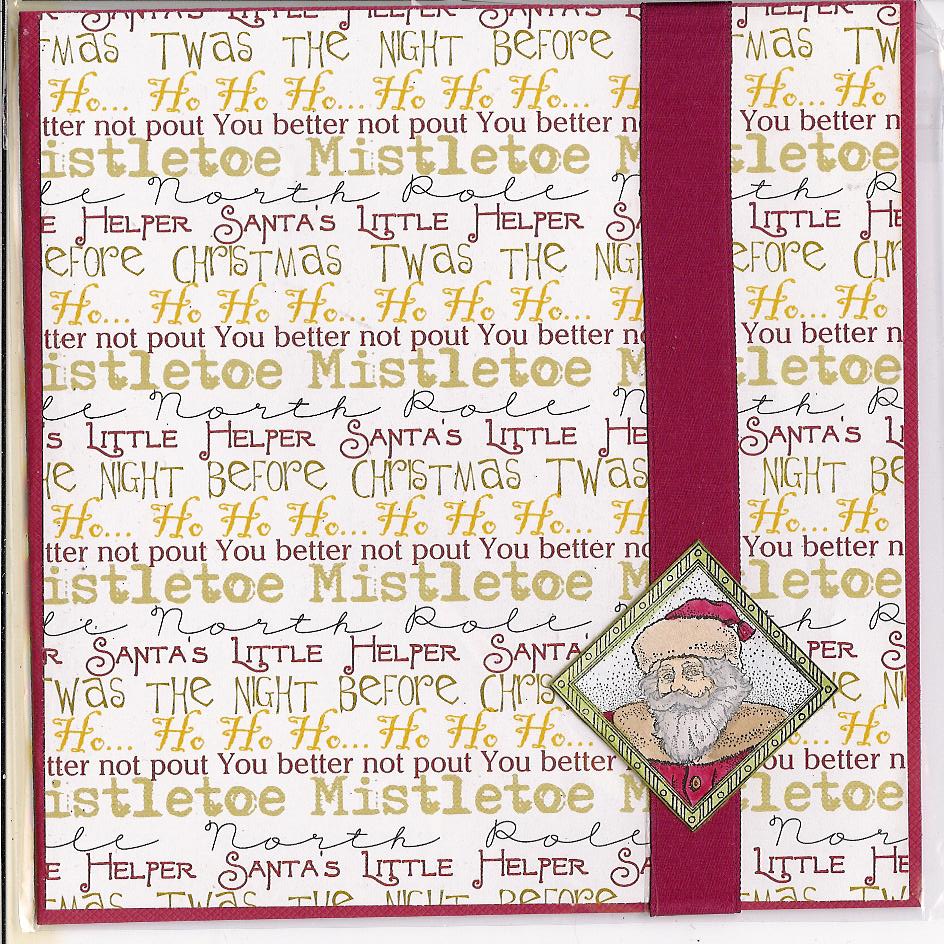 Santa's Little Helper
mas Twas the Night Before mas Tw
Ho... Ho Ho Ho... Ho Ho Ho... H Ho... Ho
tter not pout You better not pout You better n You better n
istletoe Mistletoe M letoe
le North Pole N th P
e Helper Santa's Little Helper Sa Little He
efore Christmas Twas the Nigh efore Chr
Ho... Ho Ho Ho... Ho Ho Ho... H Ho... Ho
tter not pout You better not pout You better no You better n
istletoe Mistletoe M letoe
le North Pole N th P
s Little Helper Santa's Little He Santa's Li
he Night Before Christmas Twas Night Be
Ho... Ho Ho Ho... Ho Ho Ho... H Ho... Ho
tter not pout You better not pout You better no You better n
istletoe Mistletoe M letoe
le North Pole th P
r Santa's Little Helper Santa per S
Twas the Night Before Chris e Ni
Ho... Ho Ho Ho... Ho Ho Ho... Ho
tter not pout You better not pout You better ou better n
istletoe Mistletoe M letoe
le North Pole Nor
e Helper Santa's Little Helper Sa Little He
mas Twas the Night Before mas Tw